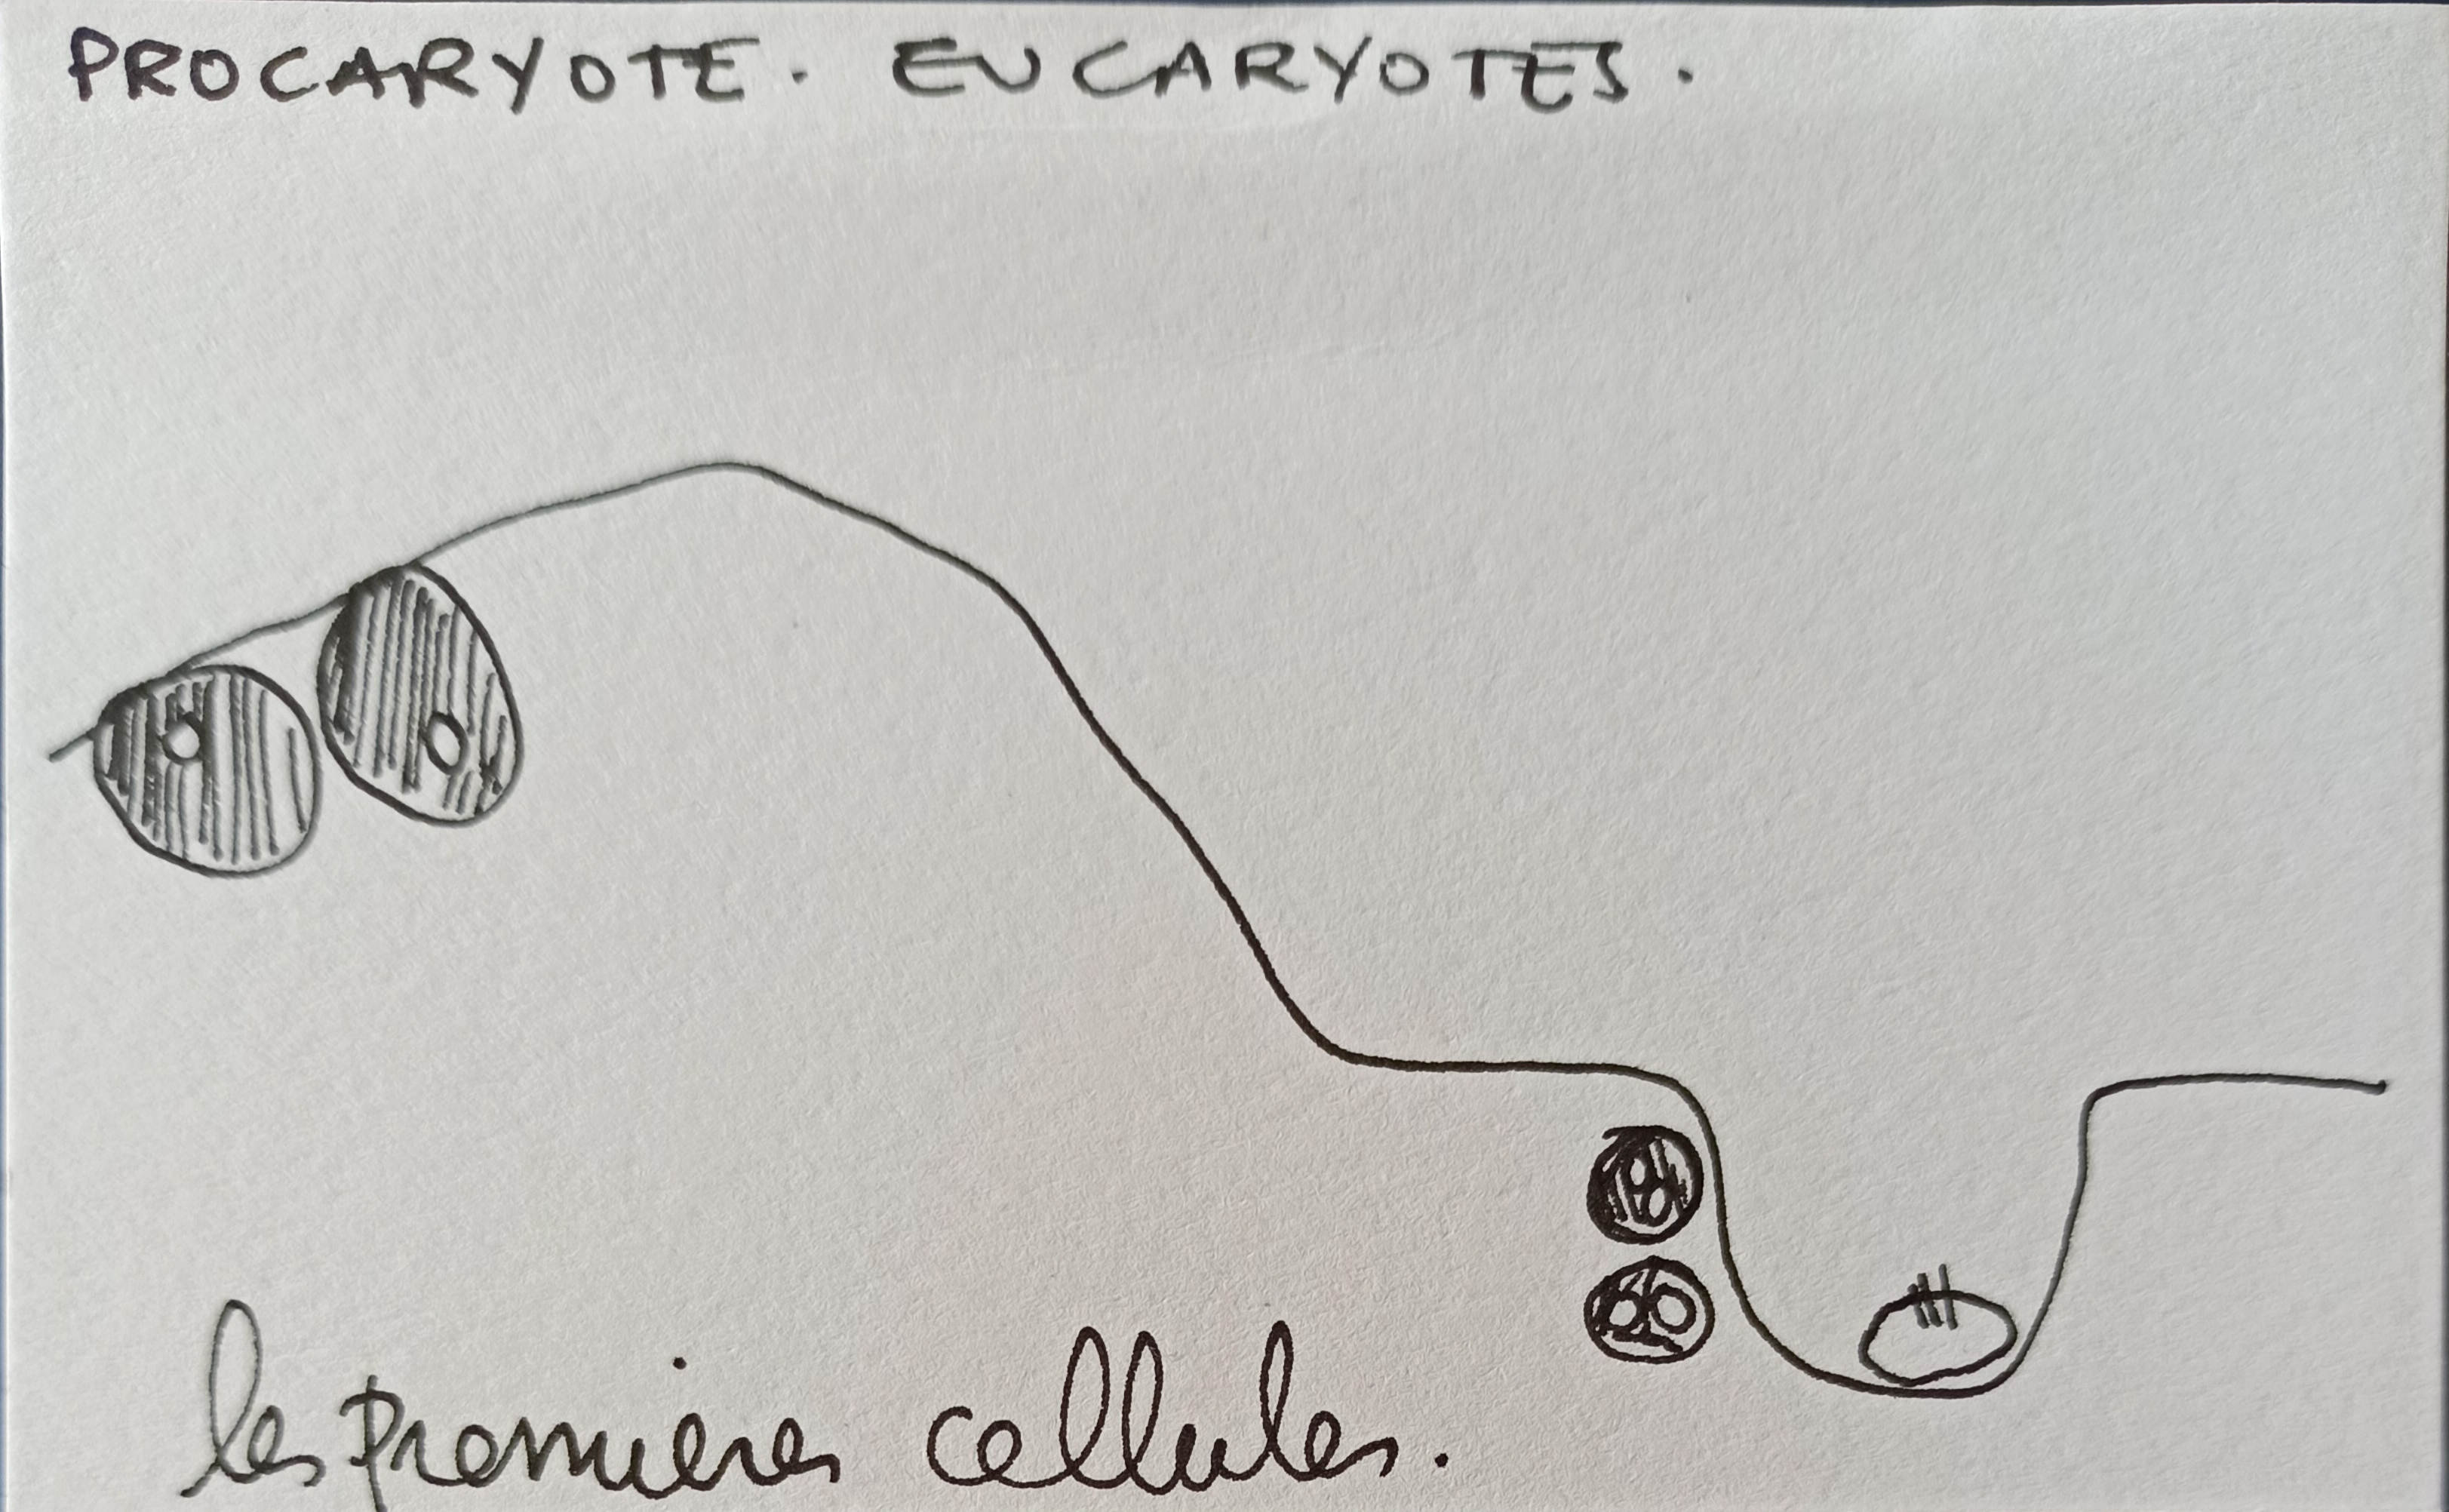 PROCARYOTE. EUCARYOTES.
les premieres cellules.